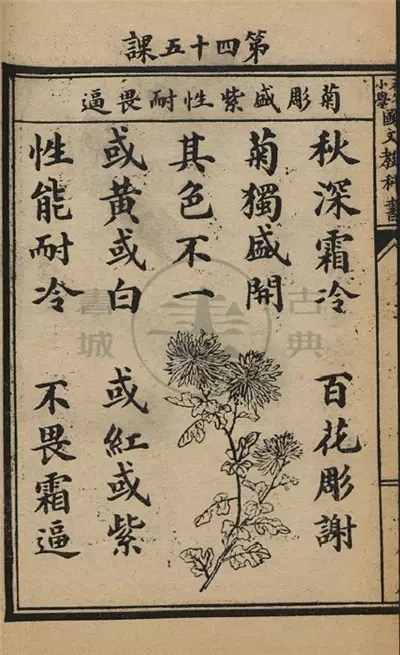 第四十五課
菊彫盛紫性耐畏逼
秋深霜冷　百花彫謝
菊獨盛開
其色不一
或黃或白　或紅或紫
性能耐冷　不畏霜逼
小學國文教科書
古典書城